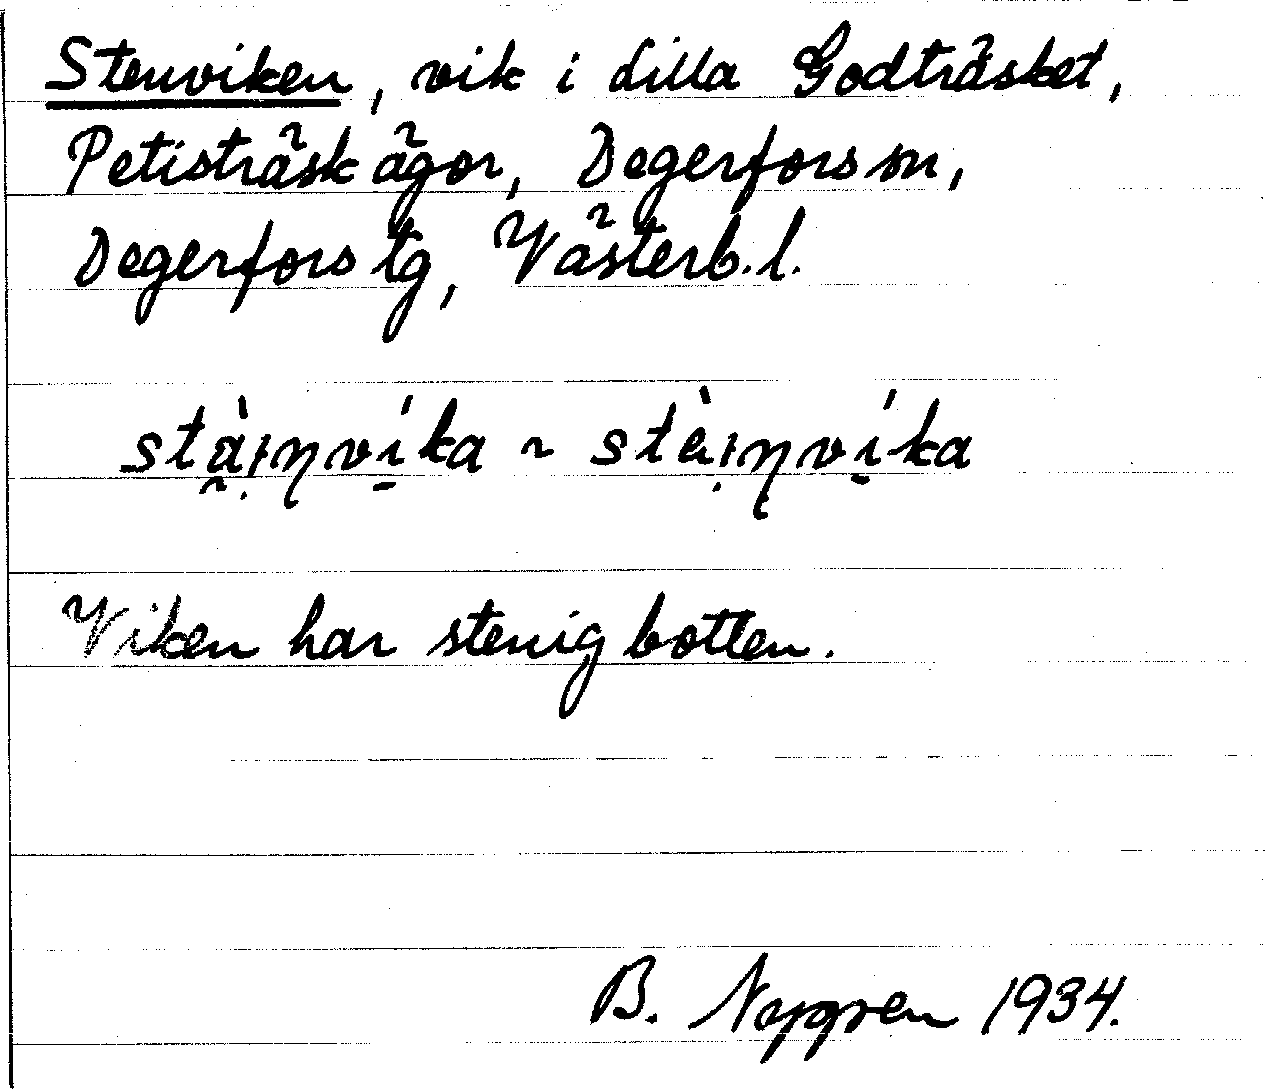 Stenviken, vik i Lilla Godträsket,
Petisträsk ägor, Degerfors sn,
Degerfors tg, Västerb. l.
stàɪŋvíka ~ stèɪŋvíka
Viken har stenig botten.
B. Nygren 1934.